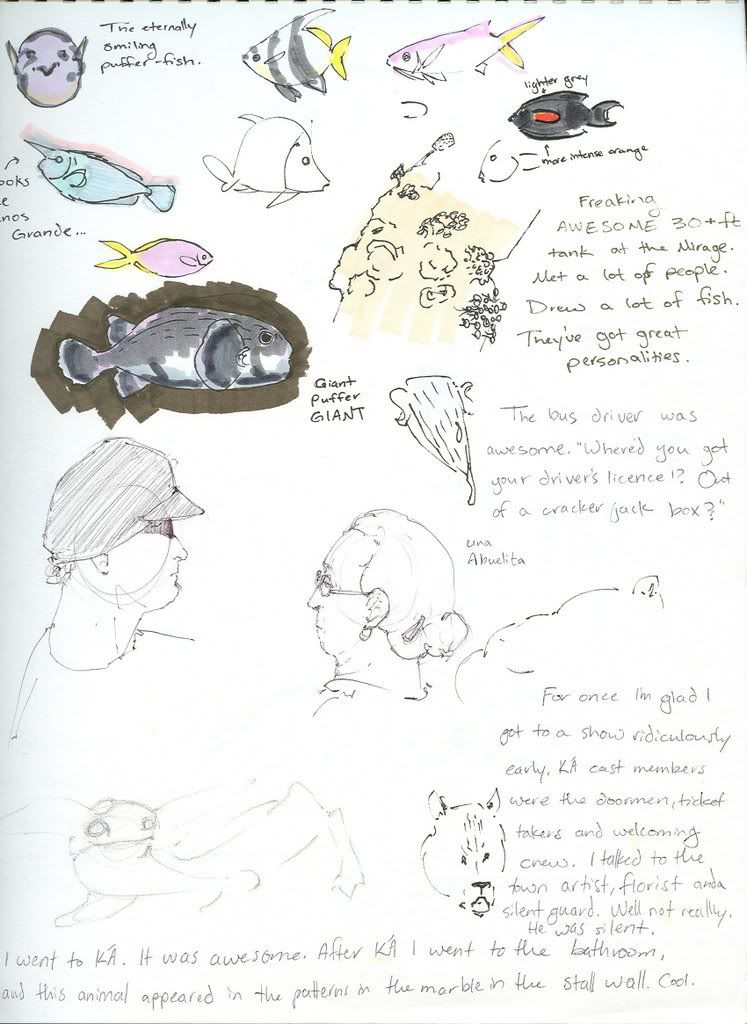 The eternally
smiling
puffer-fish.
lighter grey
more intense orange
ooks
e
nos
Grande...
Freaking
AWESOME 30+ft
tank at the Mirage.
Met a lot of people.
Drew a lot of fish.
They've got great
personalities.
Giant
puffer
GIANT
The bus driver was
awesome. "Where'd you get
your driver's licence!? Out
of a cracker jack box?"
una
Abuelita
For once I'm glad I
got to a show ridiculously
early. KÁ cast members
were the doormen, ticket
takers and welcoming
crew. I talked to the
town artist, florist and a
silent guard. Well not really.
He was silent.
I went to KÁ. It was awesome. After KÁ I went to the bathroom,
and this animal appeared in the patterns in the marble in the stall wall. Cool.